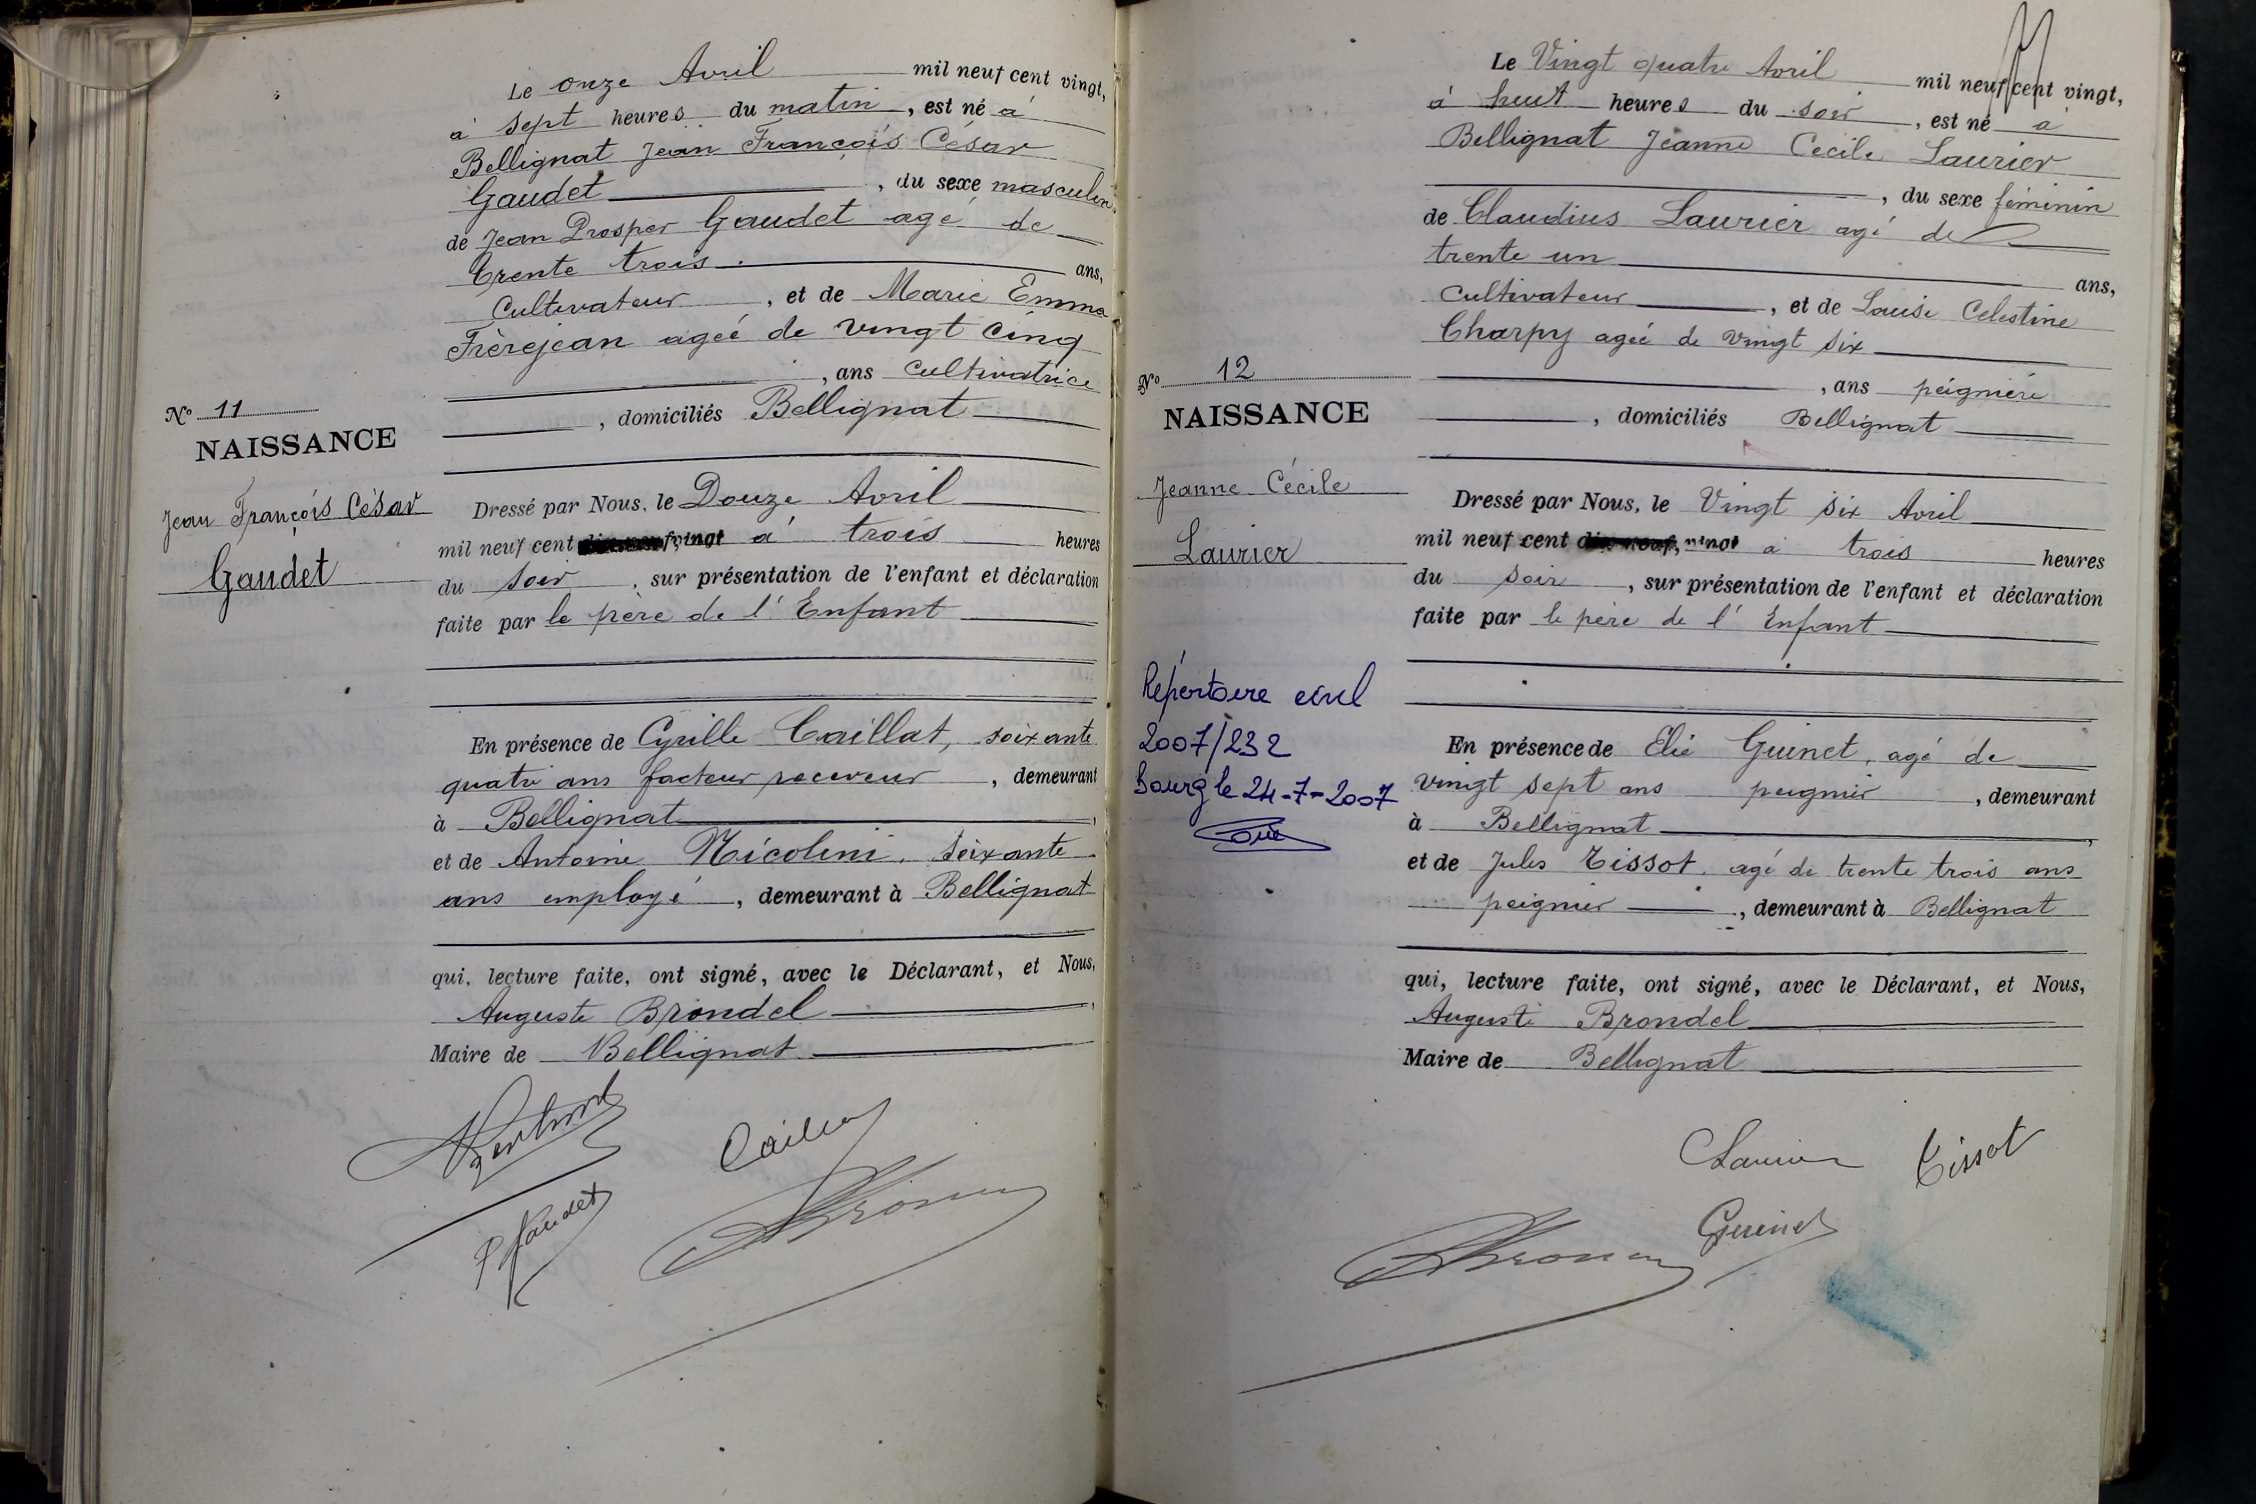 Le onze Avril mil neuf cent vingt,
à sept heures du matin, est né à
Bellignat Jean François César
Gaudet, du sexe masculin
de Jean Prosper Gaudet agé de
trente trois ans,
cultivateur, et de Marie Emma
Frèrejean agée de vingt cinq
, ans cultivatrice
, domiciliés Bellignat
N° 11
NAISSANCE
Jean François César
Gaudet
Dressé par Nous, le Douze Avril
mil neuf cent vingt à trois heures
du soir, sur présentation de l'enfant et déclaration
faite par le père de l'Enfant
En présence de Cyrille Caillat, soixante
quatre ans facteur receveur, demeurant
à Bellignat,
et de Antoine Nicolini, soixante
ans employé, demeurant à Bellignat
qui, lecture faite, ont signé, avec le Déclarant, et Nous,
Auguste Brondel,
Maire de Bellignat
P Gaudet
Le Vingt quatre Avril mil neuf cent vingt,
à huit heures du soir, est né à
Bellignat Jeanne Cécile Laurier
, du sexe féminin
de Claudius Laurier agé de
trente un ans,
cultivateur, et de Louise Celestine
Charpy agée de vingt six
, ans peignière
, domiciliés Bellignat
N° 12
NAISSANCE
Jeanne Cécile
Laurier
Dressé par Nous, le Vingt six Avril
mil neuf cent dix-neuf, vingt à trois heures
du soir, sur présentation de l'enfant et déclaration
faite par le père de l'Enfant
Répertoire civil
2007/232
Bourg le 24-7-2007
En présence de Elie Guinet, agé de
vingt sept ans peignier, demeurant
à Bellignat,
et de Jules Tissot agé de trente trois ans
peignier, demeurant à Bellignat
qui, lecture faite, ont signé, avec le Déclarant, et Nous,
Auguste Brondel
Maire de Bellignat
Laurier Tissot
Guinet